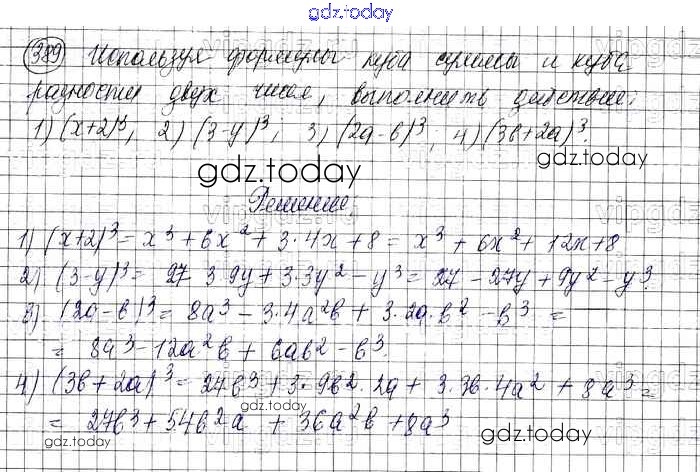 gdz.today
389 Используя формулы куба суммы и куба
разности двух чисел, выполнить действие:
1) (x+2)³, 2) (3-y)³, 3) (2a-b)³, 4) (3b+2a)³.
gdz.today
gdz.today
Решение
1) (x+2)³ = x³ + 6x² + 3·4x + 8 = x³ + 6x² + 12x + 8
2) (3-y)³ = 27 - 3·9y + 3·3y² - y³ = 27 - 27y + 9y² - y³.
3) (2a-b)³ = 8a³ - 3·4a²b + 3·2a·b² - b³ =
= 8a³ - 12a²b + 6ab² - b³.
4) (3b+2a)³ = 27b³ + 3·9b²·2a + 3·3b·4a² + 8a³ =
= 27b³ + 54b²a + 36a²b + 8a³
gdz.today
gdz.today